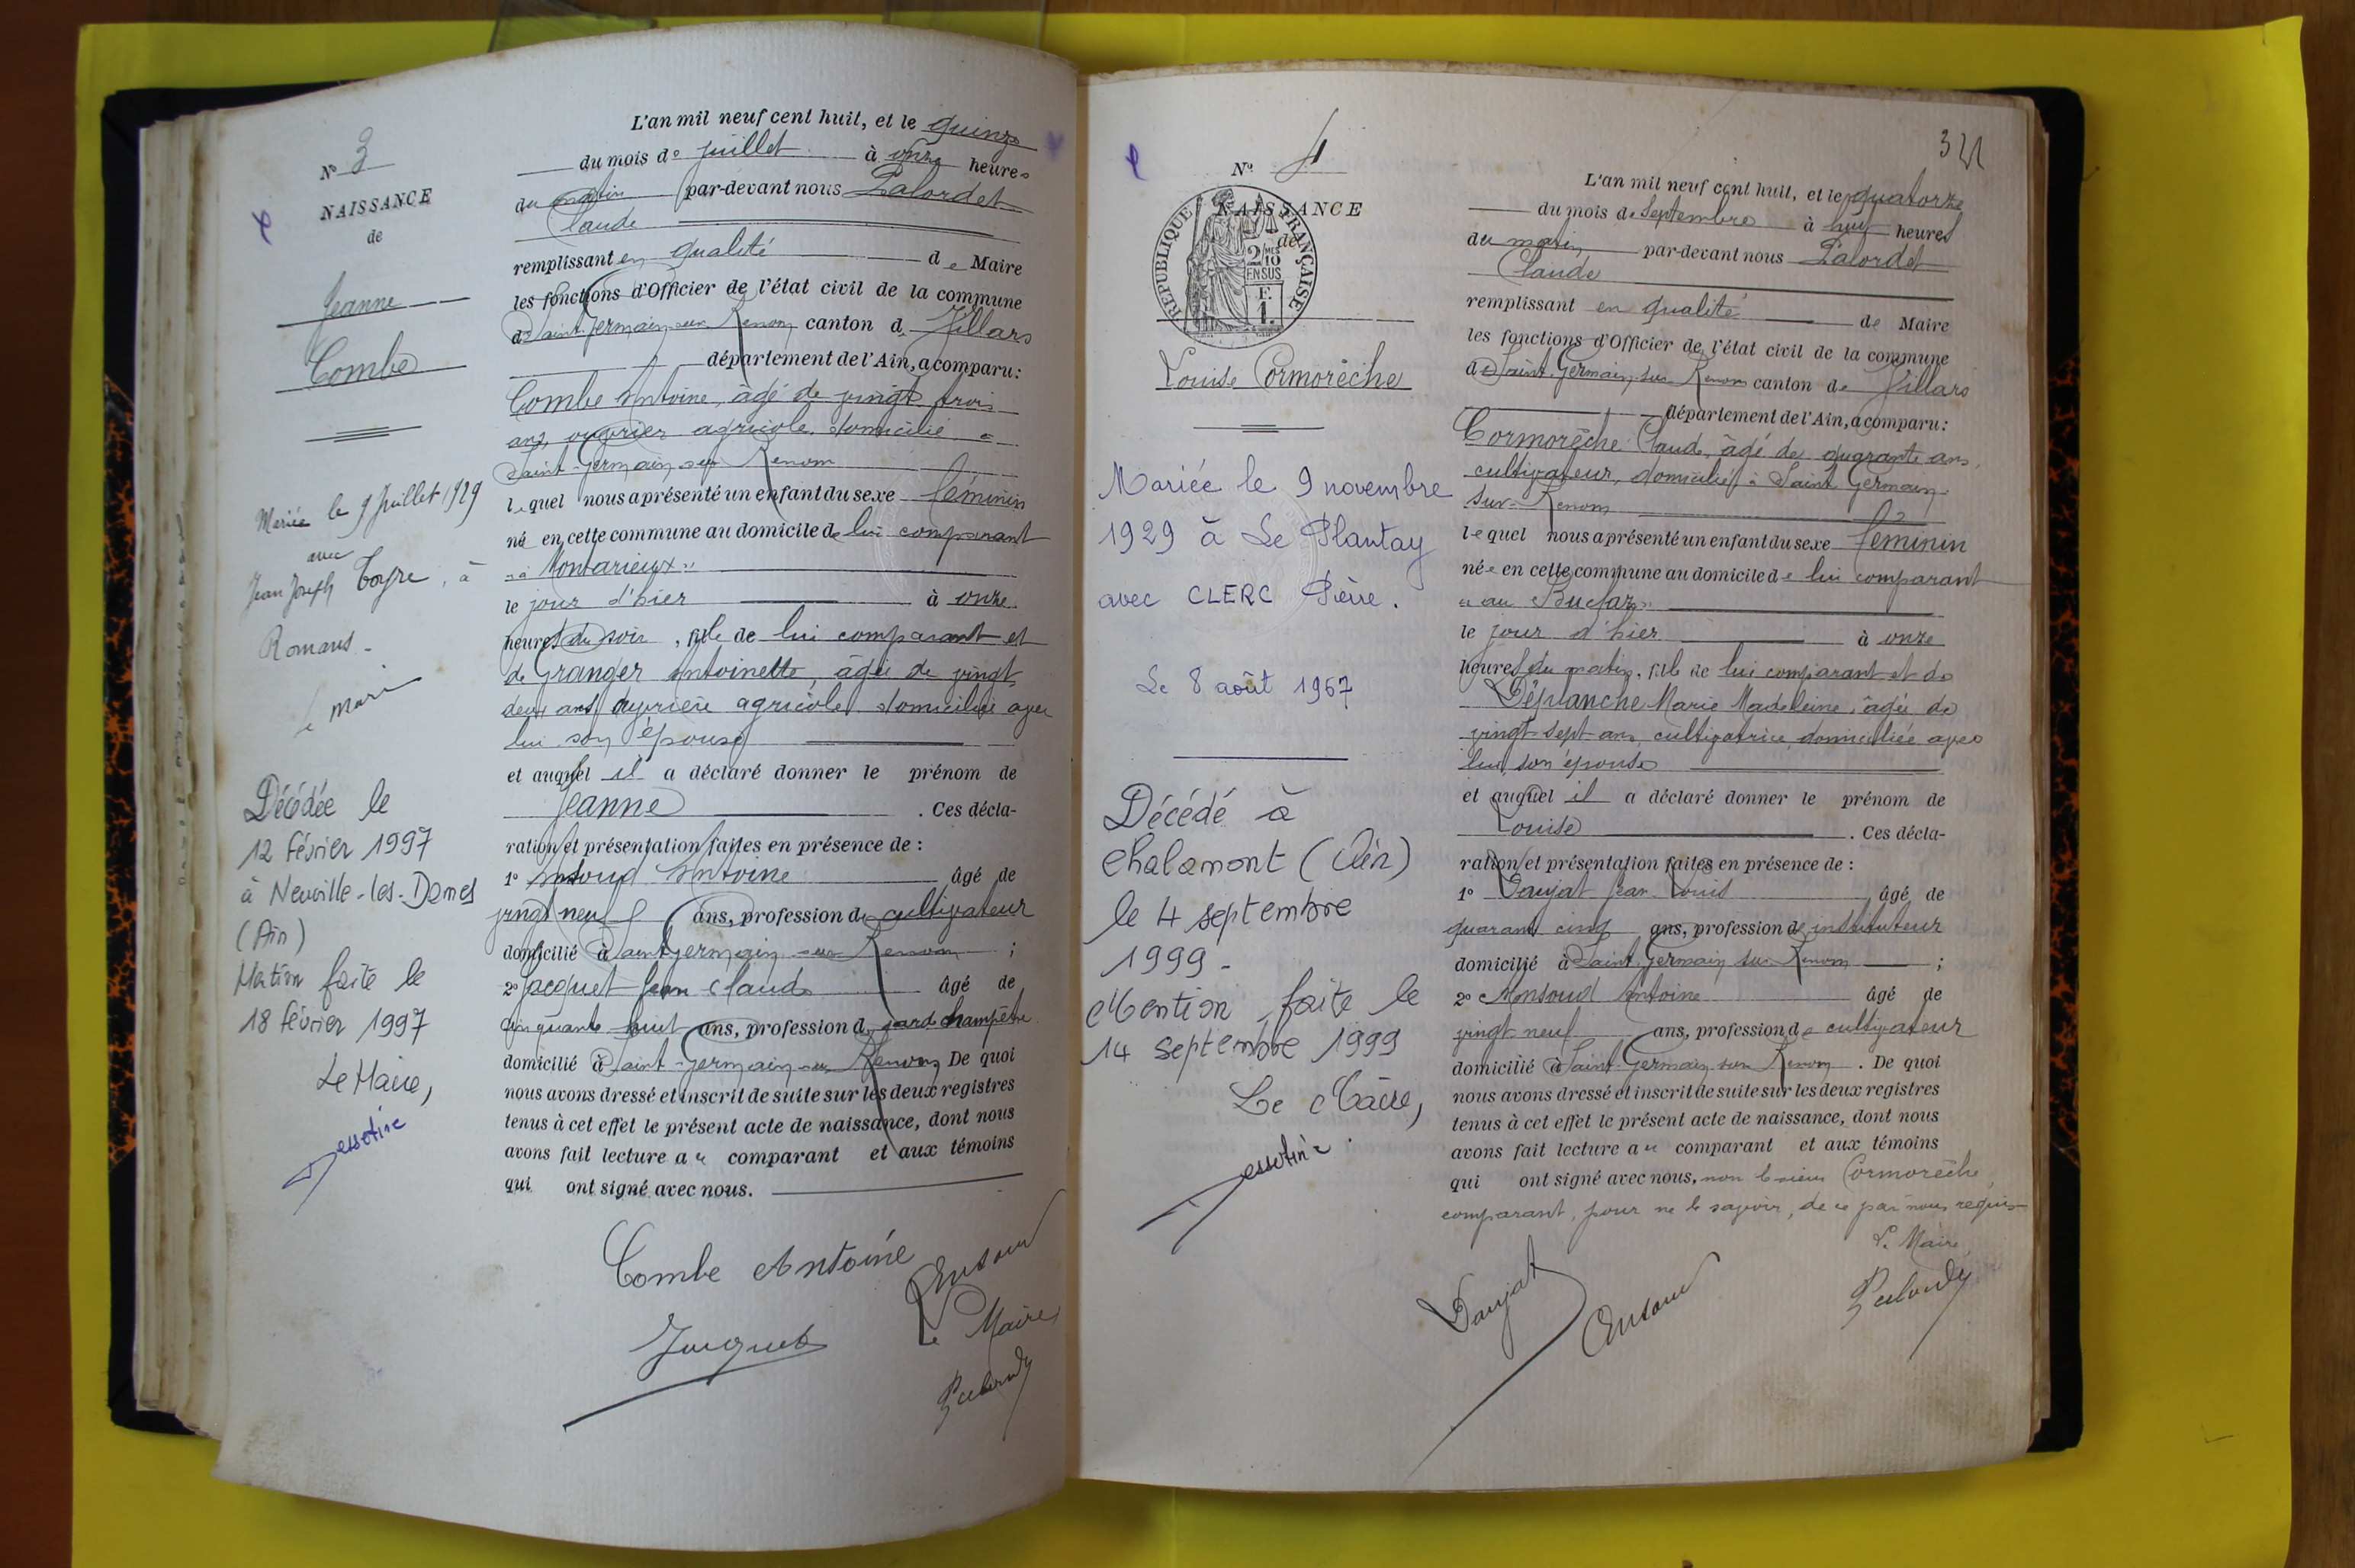 Nº 3
NAISSANCE
de
Jeanne
Combe
Mariée le 9 Juillet 1929
avec
Jean Joseph Goyre, à
Romans -
Le Mari
Décédée le
12 Février 1997
à Neuville-les-Dames
(Ain)
Mention faite le
18 Février 1997
Le Maire,
L'an mil neuf cent huit, et le quinze
du mois de juillet à onze heures
du matin par-devant nous Palordet
Claude
remplissant en qualité de Maire
les fonctions d'Officier de l'état civil de la commune
de Saint-Germain-sur Renon canton de Villars
département de l'Ain, a comparu:
Combe Antoine, âgé de vingt trois
ans, ouvrier agricole, domicilié à
Saint-Germain-sur Renom
lequel nous a présenté un enfant du sexe féminin
né en cette commune au domicile de lui comparant
"à Montarieux"
le jour d'hier à onze
heures du soir, fille de lui comparant et
de Granger Antoinette, âgée de vingt
deux ans ouvrière agricole domiciliée avec
lui son épouse
et auquel il a déclaré donner le prénom de
Jeanne . Ces décla-
ration et présentation faites en présence de :
1º Ansoud Antoine âgé de
vingt neuf ans, profession de cultivateur
domicilié à Saint Germain sur Renom ;
2º Jacquet Jean Claude âgé de
cinquante huit ans, profession de garde champêtre
domicilié à Saint-Germain-sur Renom De quoi
nous avons dressé et inscrit de suite sur les deux registres
tenus à cet effet le présent acte de naissance, dont nous
avons fait lecture au comparant et aux témoins
qui ont signé avec nous.
Combe Antoine
Ansoud
Le Maire
Jacquet
Nº 4
NAISSANCE
de
REPUBLIQUE FRANÇAISE
2/10 MES
EN SUS
F.
1.
Louise Cormorèche
Mariée le 9 novembre
1929 à Le Plantay
avec CLERC Pière.
Le 8 août 1967
Décédé à
Chalamont (Ain)
le 4 septembre
1999 -
Mention faite le
14 septembre 1999
Le Maire,
L'an mil neuf cent huit, et le quatorze
du mois de Septembre à huit heures
du matin par-devant nous Palordet
Claude
remplissant en qualité de Maire
les fonctions d'Officier de l'état civil de la commune
de Saint-Germain-sur Renom canton de Villars
département de l'Ain, a comparu:
Cormorèche Claude, âgé de quarante ans,
cultivateur, domicilié à Saint Germain
sur-Renom
lequel nous a présenté un enfant du sexe féminin
née en cette commune au domicile de lui comparant
"au Buclaz"
le jour d'hier à onze
heures du matin, fille de lui comparant et de
Dépanche Marie Madeleine, âgée de
vingt-sept ans, cultivatrice, domiciliée avec
lui, son épouse
et auquel il a déclaré donner le prénom de
Louise . Ces décla-
ration et présentation faites en présence de :
1º Daujat Jean Louis âgé de
quarante cinq ans, profession de instituteur
domicilié à Saint Germain sur Renom ;
2º Ansoud Antoine âgé de
vingt neuf ans, profession de cultivateur
domicilié à Saint-Germain sur Renom . De quoi
nous avons dressé et inscrit de suite sur les deux registres
tenus à cet effet le présent acte de naissance, dont nous
avons fait lecture au comparant et aux témoins
qui ont signé avec nous, non le sieur Cormorèche
comparant, pour ne le savoir, de ce par nous requis
Le Maire
Daujat
Ansoud